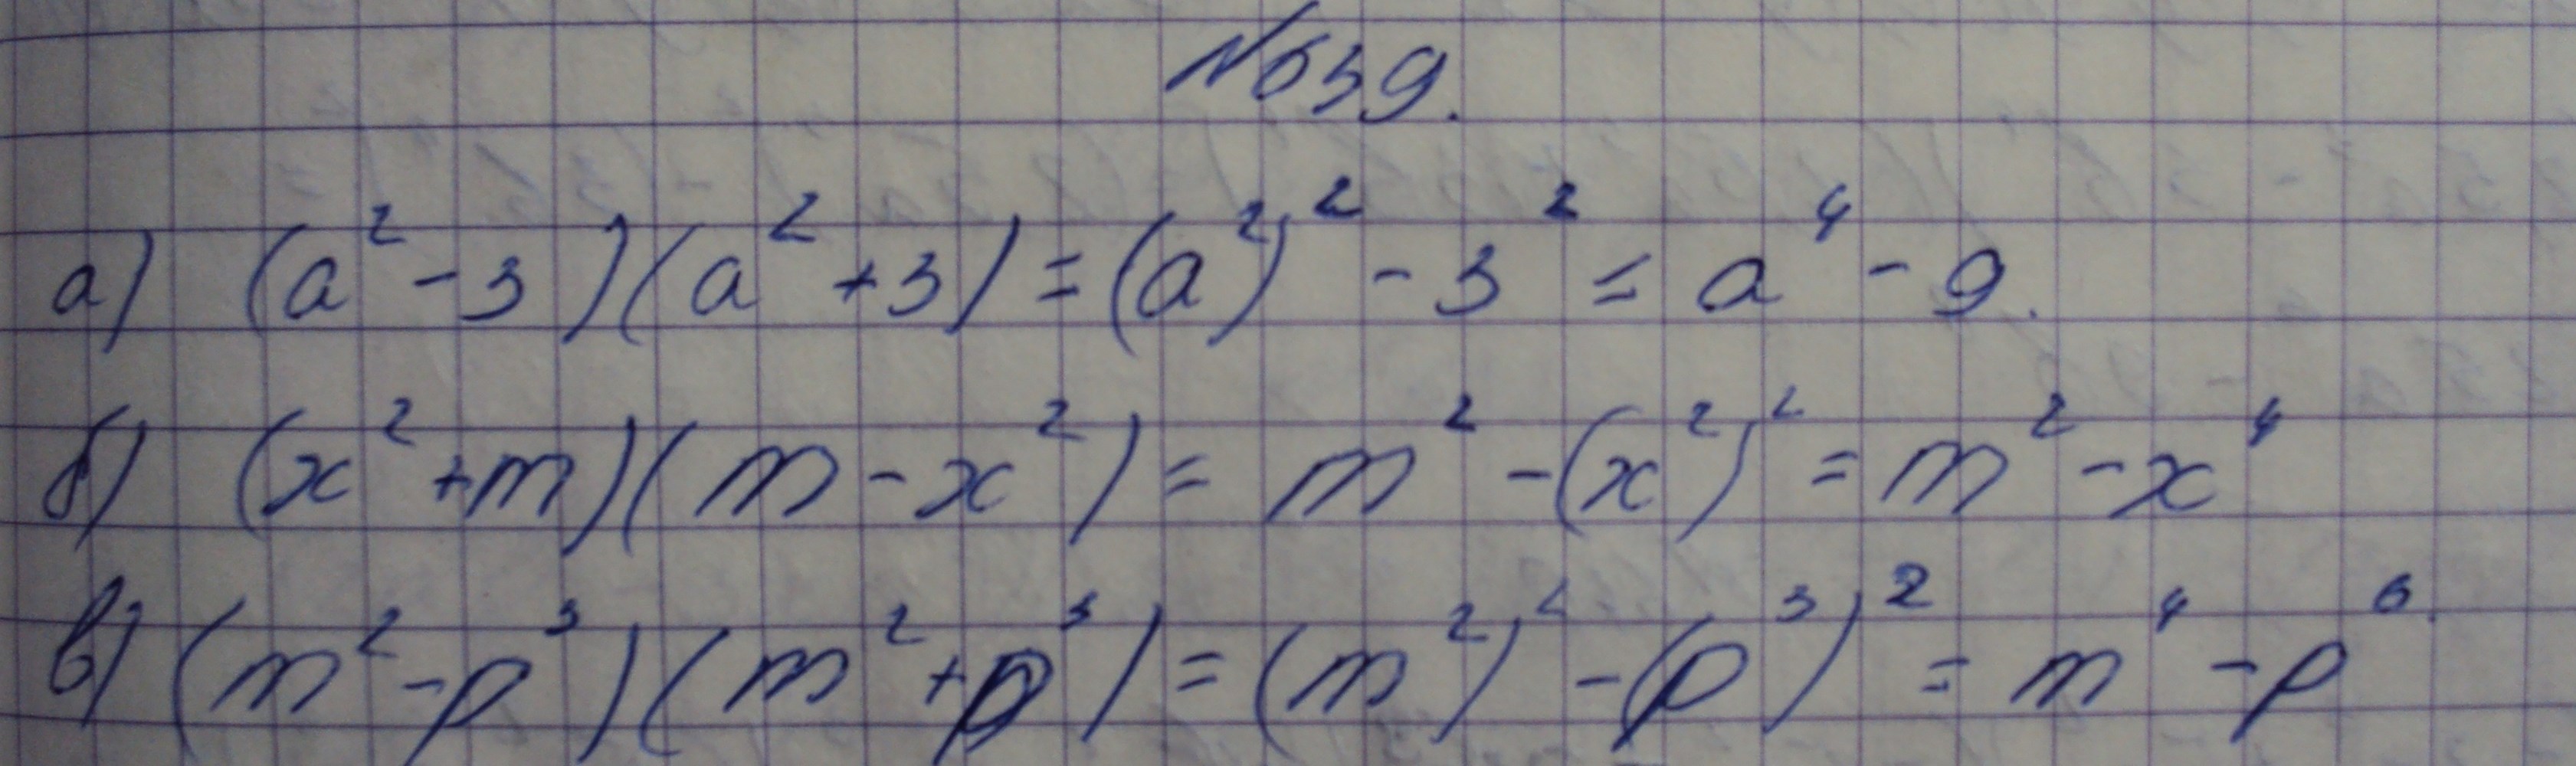 №639.
а) (a² - 3)(a² + 3) = (a²)² - 3² = a⁴ - 9.
б) (x² + m)(m - x²) = m² - (x²)² = m² - x⁴
в) (m² - p³)(m² + p³) = (m²)² - (p³)² = m⁴ - p⁶.